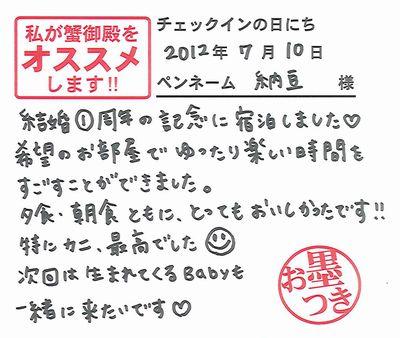 私が蟹御殿を
オススメ
します!!
チェックインの日にち
2012年 7月 10日
ペンネーム 納豆 様
結婚①周年の記念に宿泊しました♡
希望のお部屋でゆったり楽しい時間を
すごすことができました。
夕食・朝食ともに、とってもおいしかったです!!
特にカニ、最高でした☺
次回は生まれてくるBabyも
一緒に来たいです♡
お墨つき